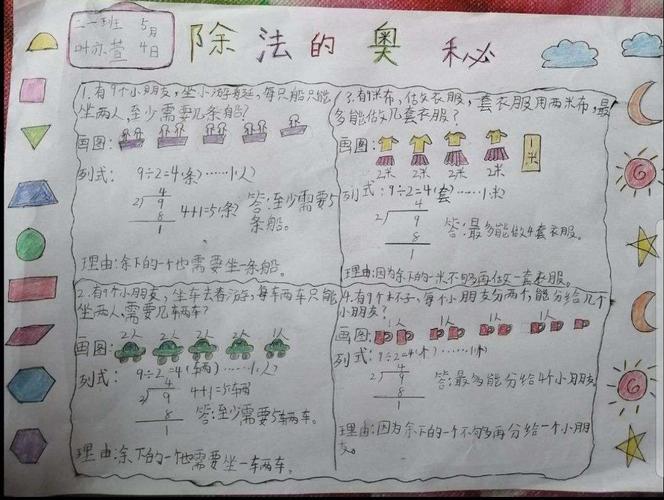 二一班 5月
叶亦萱 4日
除法的奥秘
1.有9个小朋友,坐小游艇,每只船只能
坐两人,至少需要几条船?
画图:
列式: 9÷2=4(条)……1(人)
4
2 9
8
1
4+1=5(条)
答:至少需要5
条船。
理由:余下的一个也需要坐一条船。
2.有9个小朋友,坐车去春游,每车两车只能
坐两人,需要几车两车?
画图: 2人 2人 2人 2人 1人
列式: 9÷2=4(车两)……1(人)
4
2 9
8
1
4+1=5车两
答:至少需要5车两车。
理由:余下的一个也需要坐一车两车。
3.有9米布,做衣服,一套衣服用两米布,最
多能做几套衣服?
画图: 1米
2米 2米 2米 2米
列式: 9÷2=4(套)……1(米)
4
2 9
8
1
答:最多能做4套衣服。
理由:因为余下的一米不够再做一套衣服。
4.有9个杯子,每个小朋友分两个,能分给几个
小朋友?
画图: 1人 1人 1人 1人
列式: 9÷2=4(个)……1(个)
4
2 9
8
1
答:最多能分给4个小朋友
理由:因为余下的一个不够再分给一个小朋
友。